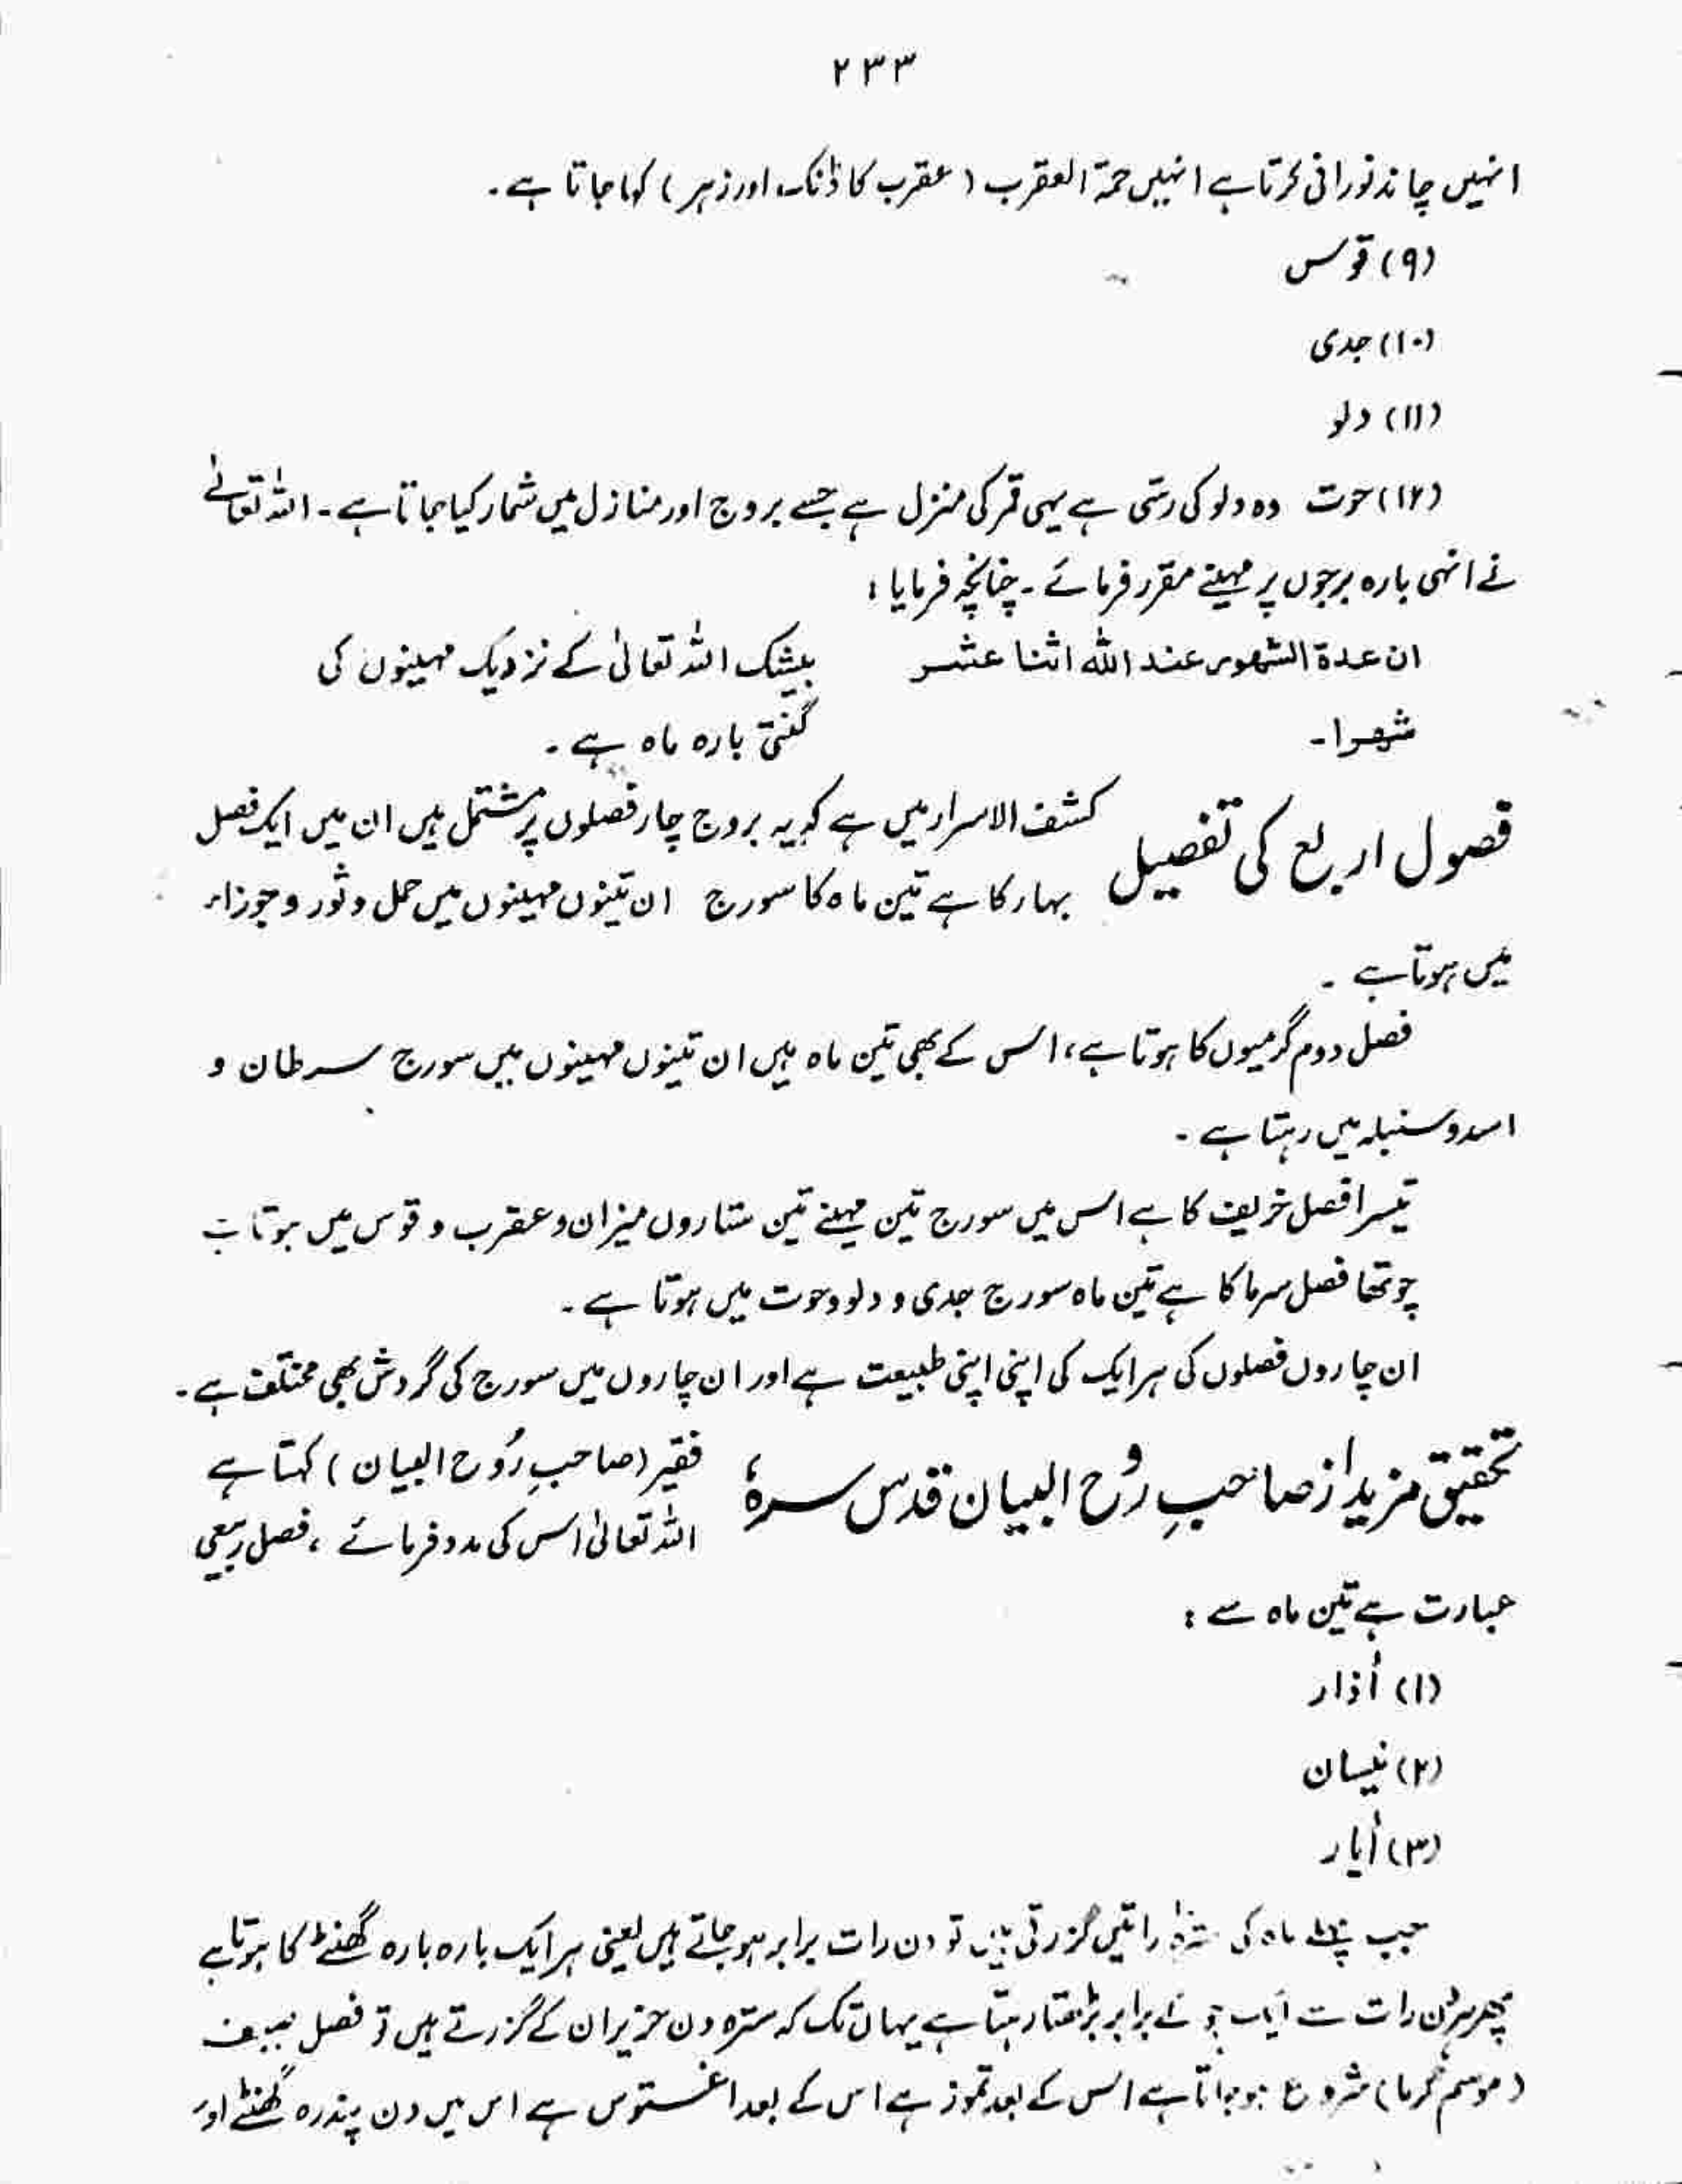 ۲۳۳
انہیں چاند نورانی کرتا ہے انہیں حمۃ العقرب (عقرب کا ڈنک اور زہر) کہا جاتا ہے۔
(۹) قوس
(۱۰) جدی
(۱۱) دلو
(۱۲) حوت وہ دلو کی رسّی ہے یہی قمر کی منزل ہے جسے بروج اور منازل میں شمار کیا جاتا ہے۔ اللہ تعالےٰ
نے انہی بارہ برجوں پر مہینے مقرر فرمائے۔ چنانچہ فرمایا:
ان عدۃ الشھور عند اللہ اثنا عشر
شھرا۔
بیشک اللہ تعالیٰ کے نزدیک مہینوں کی
گنتی بارہ ماہ ہے۔
فصول اربع کی تفصیل
کشف الاسرار میں ہے کہ یہ بروج چار فصلوں پر مشتمل ہیں ان میں ایک فصل
بہار کا ہے تین ماہ کا سورج ان تینوں مہینوں میں حمل و ثور و جوزاء
میں ہوتا ہے۔
فصل دوم گرمیوں کا ہوتا ہے، اس کے بھی تین ماہ ہیں ان تینوں مہینوں میں سورج سرطان و
اسد و سنبلہ میں رہتا ہے۔
تیسرا فصل خریف کا ہے اس میں سورج تین مہینے تین ستاروں میزان و عقرب و قوس میں ہوتا ہے
چوتھا فصل سرما کا ہے تین ماہ سورج جدی و دلو و حوت میں ہوتا ہے۔
ان چاروں فصلوں کی ہر ایک کی اپنی اپنی طبیعت ہے اور ان چاروں میں سورج کی گردش بھی مختلف ہے۔
تحقیق مزید از صاحبِ رُوح البیان قدس سرہٗ
فقیر (صاحبِ رُوح البیان) کہتا ہے
اللہ تعالیٰ اس کی مدد فرمائے، فصل ربیعی
عبارت ہے تین ماہ سے:
(۱) اُذار
(۲) نیسان
(۳) اُیار
جب پہلے ماہ کی راتیں گزرتی ہیں تو دن رات برابر ہو جاتے ہیں یعنی ہر ایک بارہ بارہ گھنٹے کا ہوتا ہے
پھر ہر دن رات سے ایک جَو کے برابر بڑھتا رہتا ہے یہاں تک کہ سترہ دن حزیران کے گزرتے ہیں تو فصل صیف
(موسم گرما) شروع ہو جاتا ہے اس کے بعد تموز ہے اس کے بعد اغستوس ہے اس میں دن پندرہ گھنٹے اور